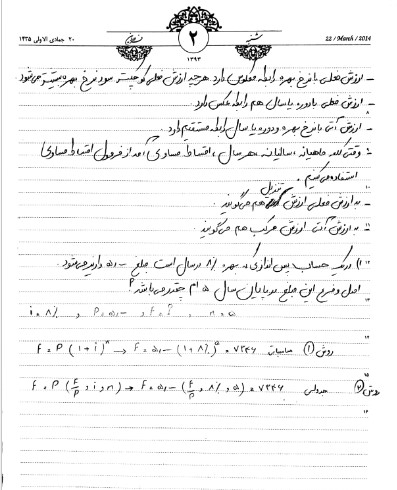 ۲۰ جمادی الاولی ۱۴۳۵
۲
شنبه
22 / March / 2014
۱۳۹۳
- ارزش فعلی با نرخ بهره رابطه معکوس دارد هر چه ارزش فعلی کوچیکتر سود نرخ بهره بیشتر می‌شود
- ارزش فعلی با دوره یا سال هم رابطه عکس دارد.
۸
- ارزش آتی با نرخ بهره و دوره یا سال رابطه مستقیم دارد
- وقتی کلمه ماهیانه، سالیانه، هر سال، اقساط مساوی آمد از فرمول اقساط مساوی
استفاده می‌کنیم.
۱۰
- به ارزش فعلی ارزش تنزیل هم می‌گویند.
۱۱
- به ارزش آتی ارزش مرکب هم می‌گویند
۱۲
۱) در یک حساب پس اندازی که بهره ۸٪ در سال است مبلغ ۵۰۰۰ واریز می‌شود.
اصل و فرع این مبلغ در پایان سال ۵ ام چقدر می‌باشد؟
i = ۸٪ , P = ۵۰۰۰ , F = ? , n = ۵
روش ۱) محاسبات F = P (1+i)ⁿ → F = ۵۰۰۰ (1+۸٪)⁵ = ۷۳۴۶
۱۵
روش ۲) جدولی F = P (F/P , i , n) → F = ۵۰۰۰ (F/P , ۸٪ , ۵) = ۷۳۴۶